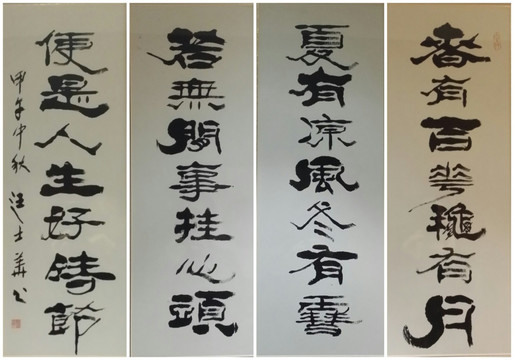 春有百花穐有月
夏有凉風冬有雪
若無閒事挂心頭
便是人生好時節
甲午中秋 汪士華书